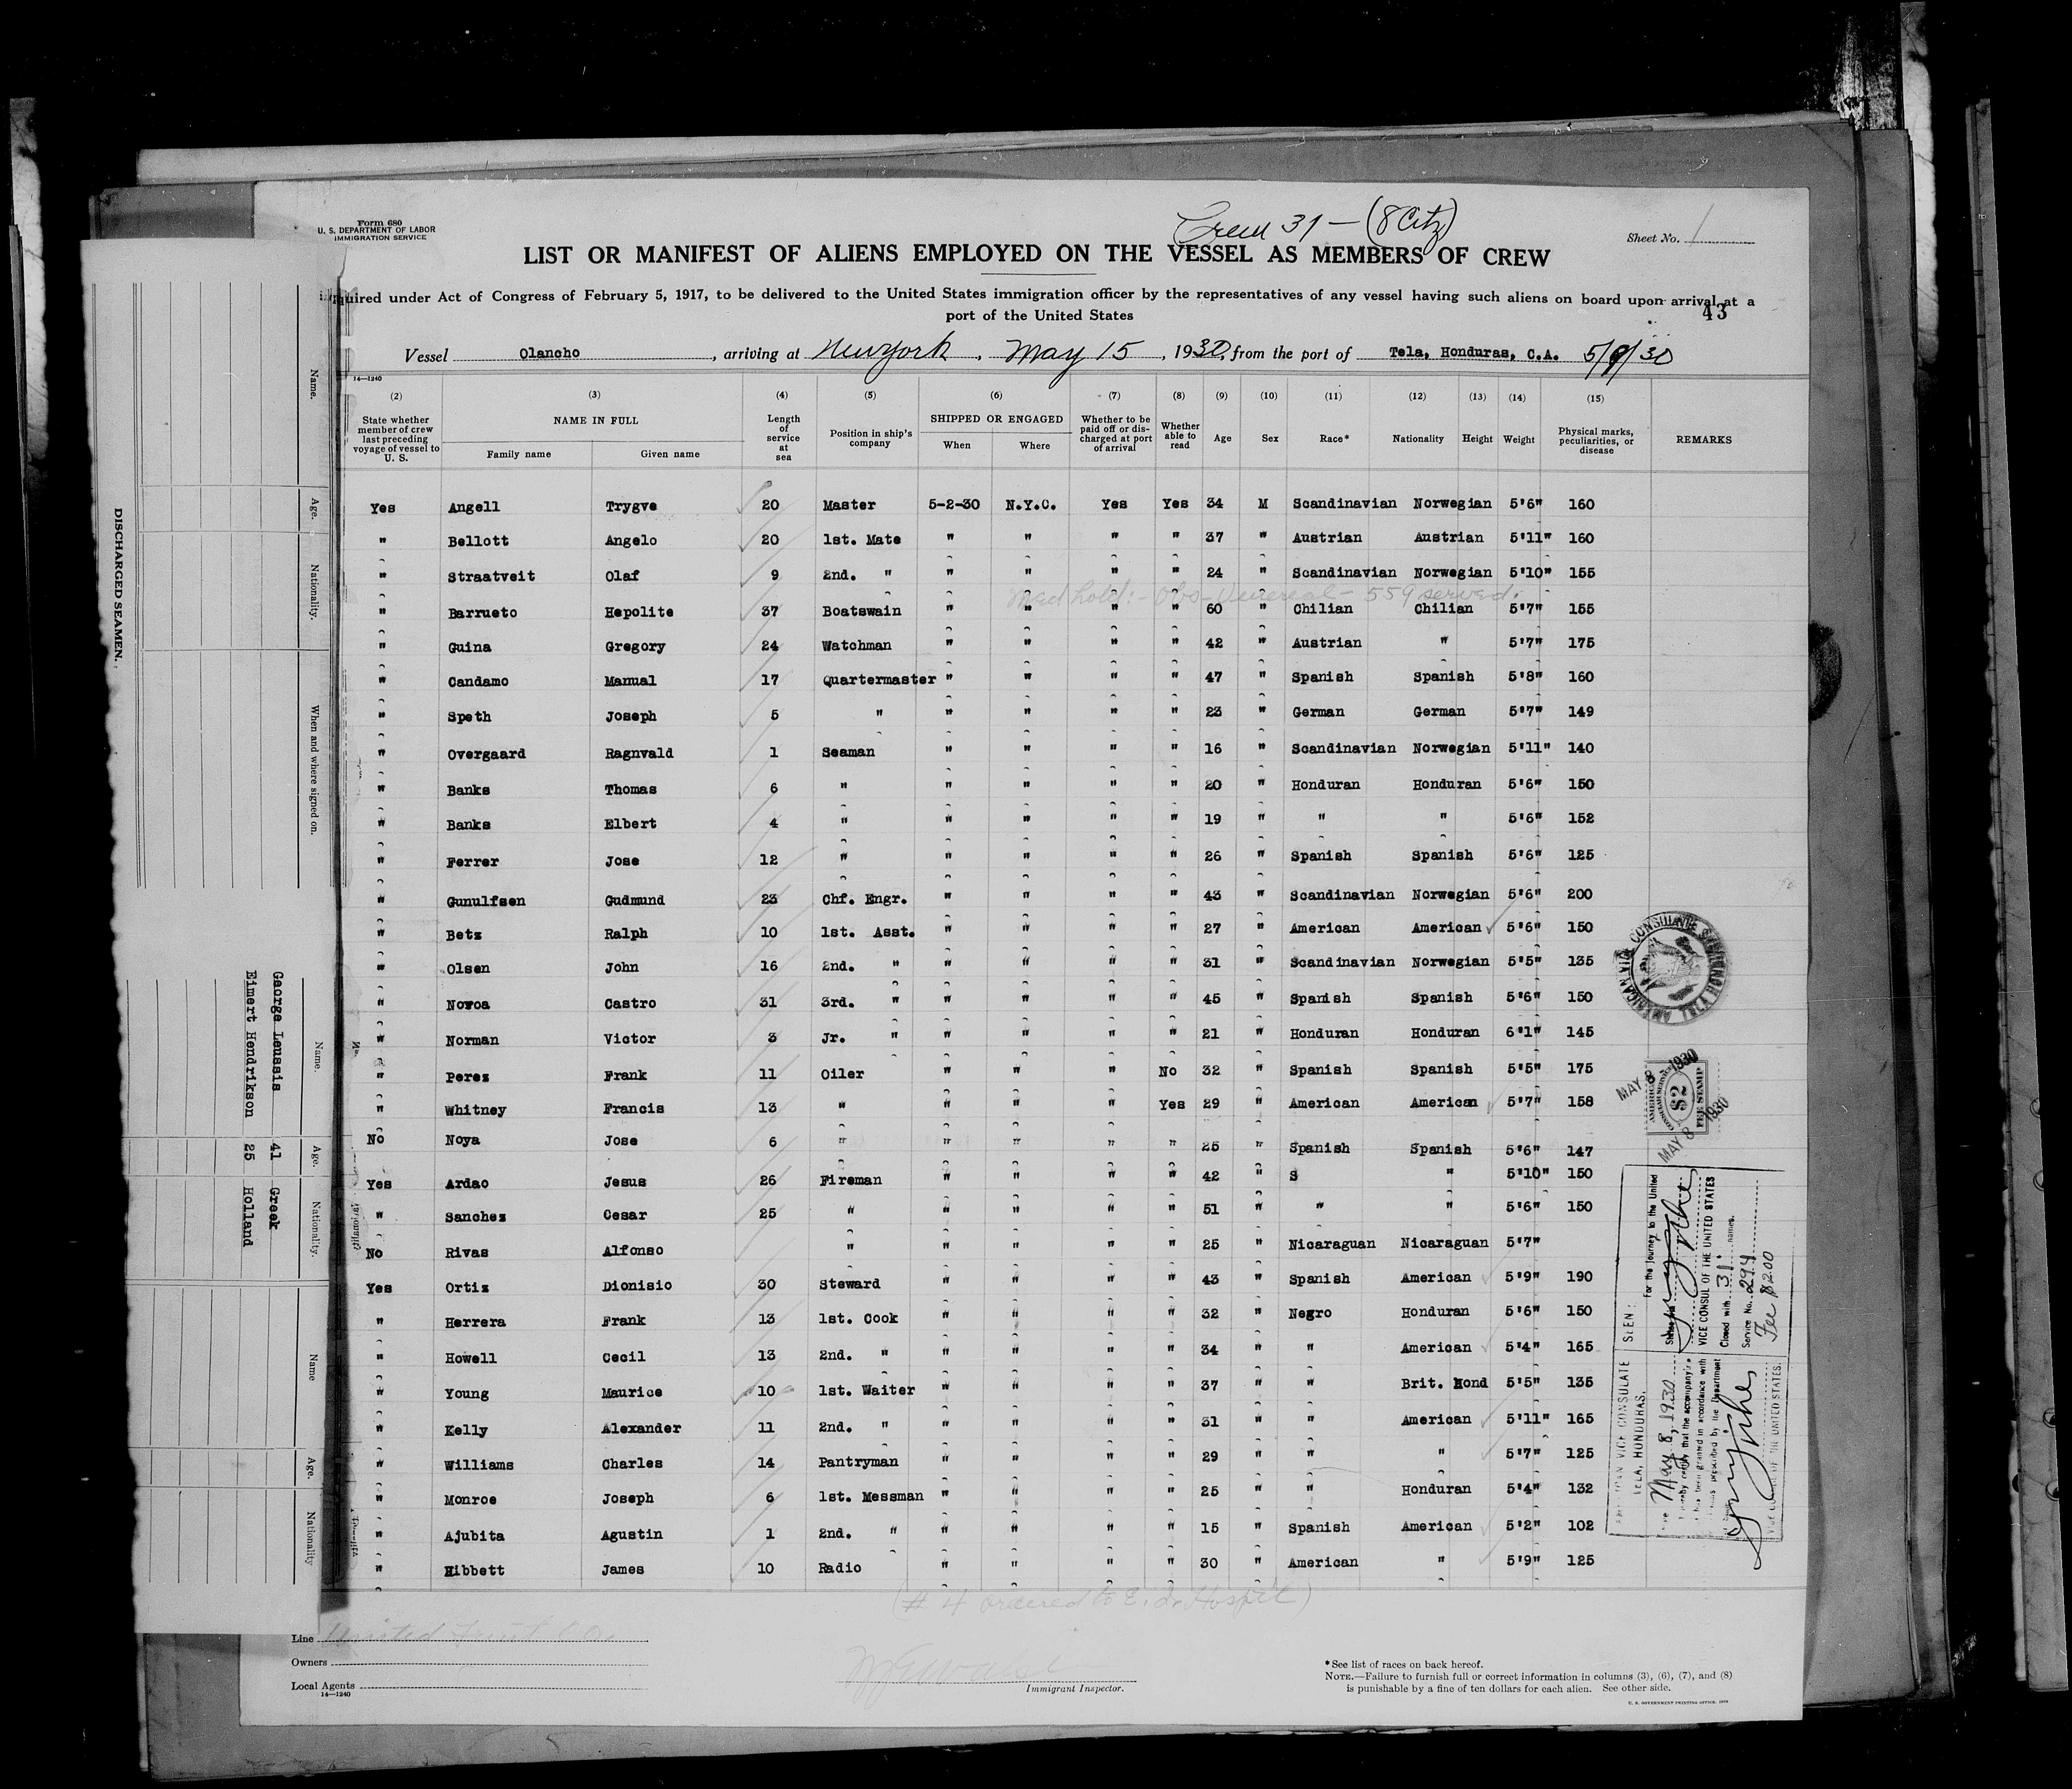 Form 680
U. S. DEPARTMENT OF LABOR
IMMIGRATION SERVICE
Crew 31 — (8 Citz)
Sheet No. 1
LIST OR MANIFEST OF ALIENS EMPLOYED ON THE VESSEL AS MEMBERS OF CREW
quired under Act of Congress of February 5, 1917, to be delivered to the United States immigration officer by the representatives of any vessel having such aliens on board upon arrival at a
port of the United States
43
Vessel Olancho, arriving at New York, May 15, 1930, from the port of Tela, Honduras, C.A. 5/9/30
14—1240
(2) (3) (4) (5) (6) (7) (8) (9) (10) (11) (12) (13) (14) (15)
State whether member of crew last preceding voyage of vessel to U. S. NAME IN FULL Family name Given name Length of service at sea Position in ship's company SHIPPED OR ENGAGED When Where Whether to be paid off or discharged at port of arrival Whether able to read Age Sex Race* Nationality Height Weight Physical marks, peculiarities, or disease REMARKS
Yes Angell Trygve 20 Master 5-2-30 N.Y.C. Yes Yes 34 M Scandinavian Norwegian 5'6" 160
" Bellott Angelo 20 1st. Mate " " " " 37 " Austrian Austrian 5'11" 160
" Straatveit Olaf 9 2nd. " " " " " 24 " Scandinavian Norwegian 5'10" 155
Med hold:- Obs- Venereal- 559 served.
" Barrueto Hepolite 37 Boatswain " " " " 60 " Chilian Chilian 5'7" 155
" Guina Gregory 24 Watchman " " " " 42 " Austrian " 5'7" 175
" Candamo Manual 17 Quartermaster " " " " 47 " Spanish Spanish 5'8" 160
" Speth Joseph 5 " " " " " 23 " German German 5'7" 149
" Overgaard Ragnvald 1 Seaman " " " " 16 " Scandinavian Norwegian 5'11" 140
" Banks Thomas 6 " " " " " 20 " Honduran Honduran 5'6" 150
" Banks Elbert 4 " " " " " 19 " " " 5'6" 152
" Ferrer Jose 12 " " " " " 26 " Spanish Spanish 5'6" 125
" Gunulfsen Gudmund 23 Chf. Engr. " " " " 43 " Scandinavian Norwegian 5'6" 200
" Betz Ralph 10 1st. Asst. " " " " 27 " American American 5'6" 150
" Olsen John 16 2nd. " " " " " 31 " Scandinavian Norwegian 5'5" 135
" Novoa Castro 31 3rd. " " " " " 45 " Spanish Spanish 5'6" 150
" Norman Victor 3 Jr. " " " " " 21 " Honduran Honduran 6'1" 145
" Perez Frank 11 Oiler " " " No 32 " Spanish Spanish 5'5" 175
" Whitney Francis 13 " " " " Yes 29 " American American 5'7" 158
No Noya Jose 6 " " " " " 25 " Spanish Spanish 5'6" 147
Yes Ardao Jesus 26 Fireman " " " " 42 " S " 5'10" 150
" Sanchez Cesar 25 " " " " " 51 " " " 5'6" 150
No Rivas Alfonso " " " " " 25 " Nicaraguan Nicaraguan 5'7"
Yes Ortiz Dionisio 30 Steward " " " " 43 " Spanish American 5'9" 190
" Herrera Frank 13 1st. Cook " " " " 32 " Negro Honduran 5'6" 150
" Howell Cecil 13 2nd. " " " " " 34 " " American 5'4" 165
" Young Maurice 10 1st. Waiter " " " " 37 " " Brit. Hond 5'5" 135
" Kelly Alexander 11 2nd. " " " " " 31 " " American 5'11" 165
" Williams Charles 14 Pantryman " " " " 29 " " " 5'7" 125
" Monroe Joseph 6 1st. Messman " " " " 25 " " Honduran 5'4" 132
" Ajubita Agustin 1 2nd. " " " " " 15 " Spanish American 5'2" 102
" Hibbett James 10 Radio " " " " 30 " American " 5'9" 125
(# 4 ordered to E. I. Hospital)
Line United Fruit Co.
Owners
Local Agents
14—1240
Immigrant Inspector.
*See list of races on back hereof.
NOTE.—Failure to furnish full or correct information in columns (3), (6), (7), and (8)
is punishable by a fine of ten dollars for each alien. See other side.
U. S. GOVERNMENT PRINTING OFFICE
AMERICAN VICE CONSULATE TELA HONDURAS
MAY 8 1930
AMERICAN CONSULAR SERVICE
$2
FEE STAMP
MAY 8 1930
VICE CONSULATE
TELA, HONDURAS.
May 8, 1930
certify that the accompanying
has been granted in accordance with
prescribed by the Department
VICE CONSUL OF THE UNITED STATES.
SEEN:
For the journey to the United
VICE CONSUL OF THE UNITED STATES
Closed with 31 names.
Service No. 294
Fee $2.00
DISCHARGED SEAMEN.
Name.
Age.
Nationality.
When and where signed on.
Name.
Age.
Nationality.
George Leussis 41 Greek
Eimert Hendrikson 25 Holland
Name
Age.
Nationality